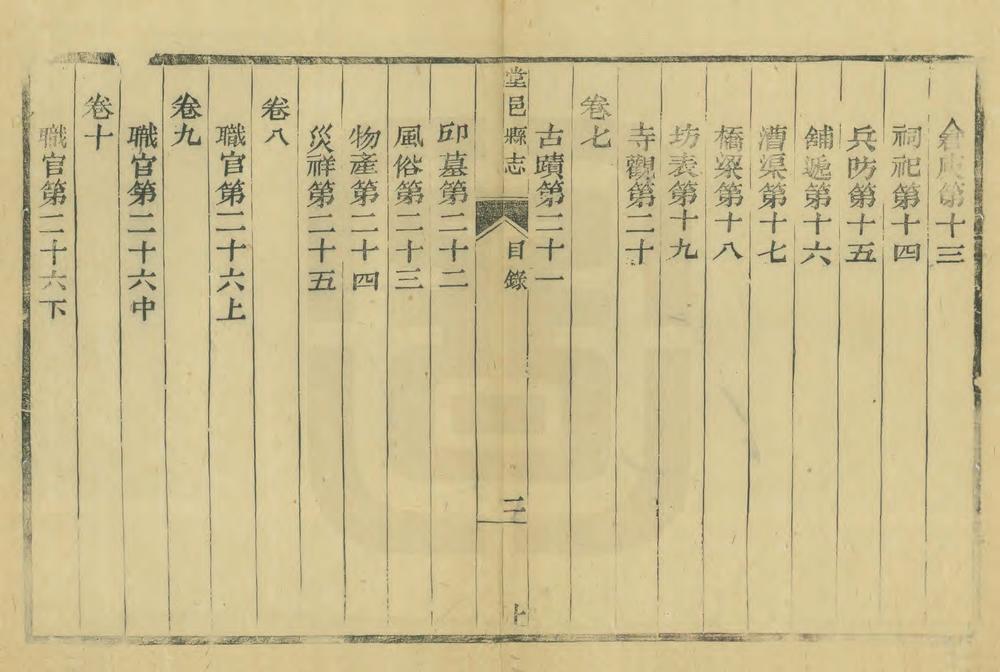 倉庾第十三
祠祀第十四
兵防第十五
舖遞第十六
漕渠第十七
橋梁第十八
坊表第十九
寺觀第二十
卷七
古蹟第二十一
堂邑縣志
目錄
二
卭墓第二十二
風俗第二十三
物產第二十四
災祥第二十五
卷八
職官第二十六上
卷九
職官第二十六中
卷十
職官第二十六下